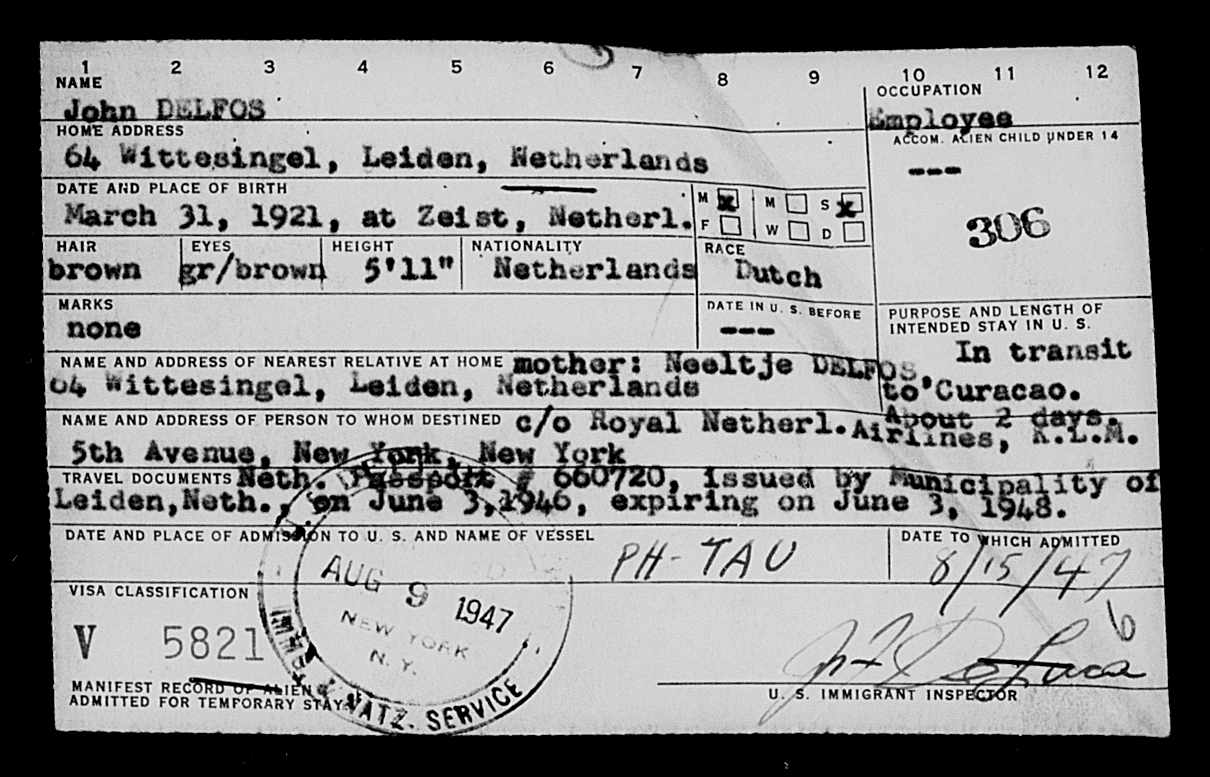 1 2 3 4 5 6 7 8 9 10 11 12
NAME
John DELFOS
OCCUPATION
Employee
HOME ADDRESS
64 Wittesingel, Leiden, Netherlands
ACCOM. ALIEN CHILD UNDER 14
---
306
DATE AND PLACE OF BIRTH
March 31, 1921, at Zeist, Netherl.
M x M S x
F W D
HAIR EYES HEIGHT NATIONALITY RACE
brown gr/brown 5'11" Netherlands Dutch
MARKS
none
DATE IN U. S. BEFORE
---
PURPOSE AND LENGTH OF
INTENDED STAY IN U. S.
In transit
to Curacao.
About 2 days.
NAME AND ADDRESS OF NEAREST RELATIVE AT HOME mother: Neeltje DELFOS,
64 Wittesingel, Leiden, Netherlands
NAME AND ADDRESS OF PERSON TO WHOM DESTINED c/o Royal Netherl. Airlines, K.L.M.
5th Avenue, New York, New York
TRAVEL DOCUMENTS Neth. Passport # 660720, issued by Municipality of
Leiden,Neth., on June 3,1946, expiring on June 3, 1948.
DATE AND PLACE OF ADMISSION TO U. S. AND NAME OF VESSEL
PH-TAU
DATE TO WHICH ADMITTED
8/15/47
AUG 9 1947
NEW YORK
N. Y.
IMM. & NATZ. SERVICE
VISA CLASSIFICATION
V 5821
6
MANIFEST RECORD OF ALIEN
ADMITTED FOR TEMPORARY STAY
U. S. IMMIGRANT INSPECTOR